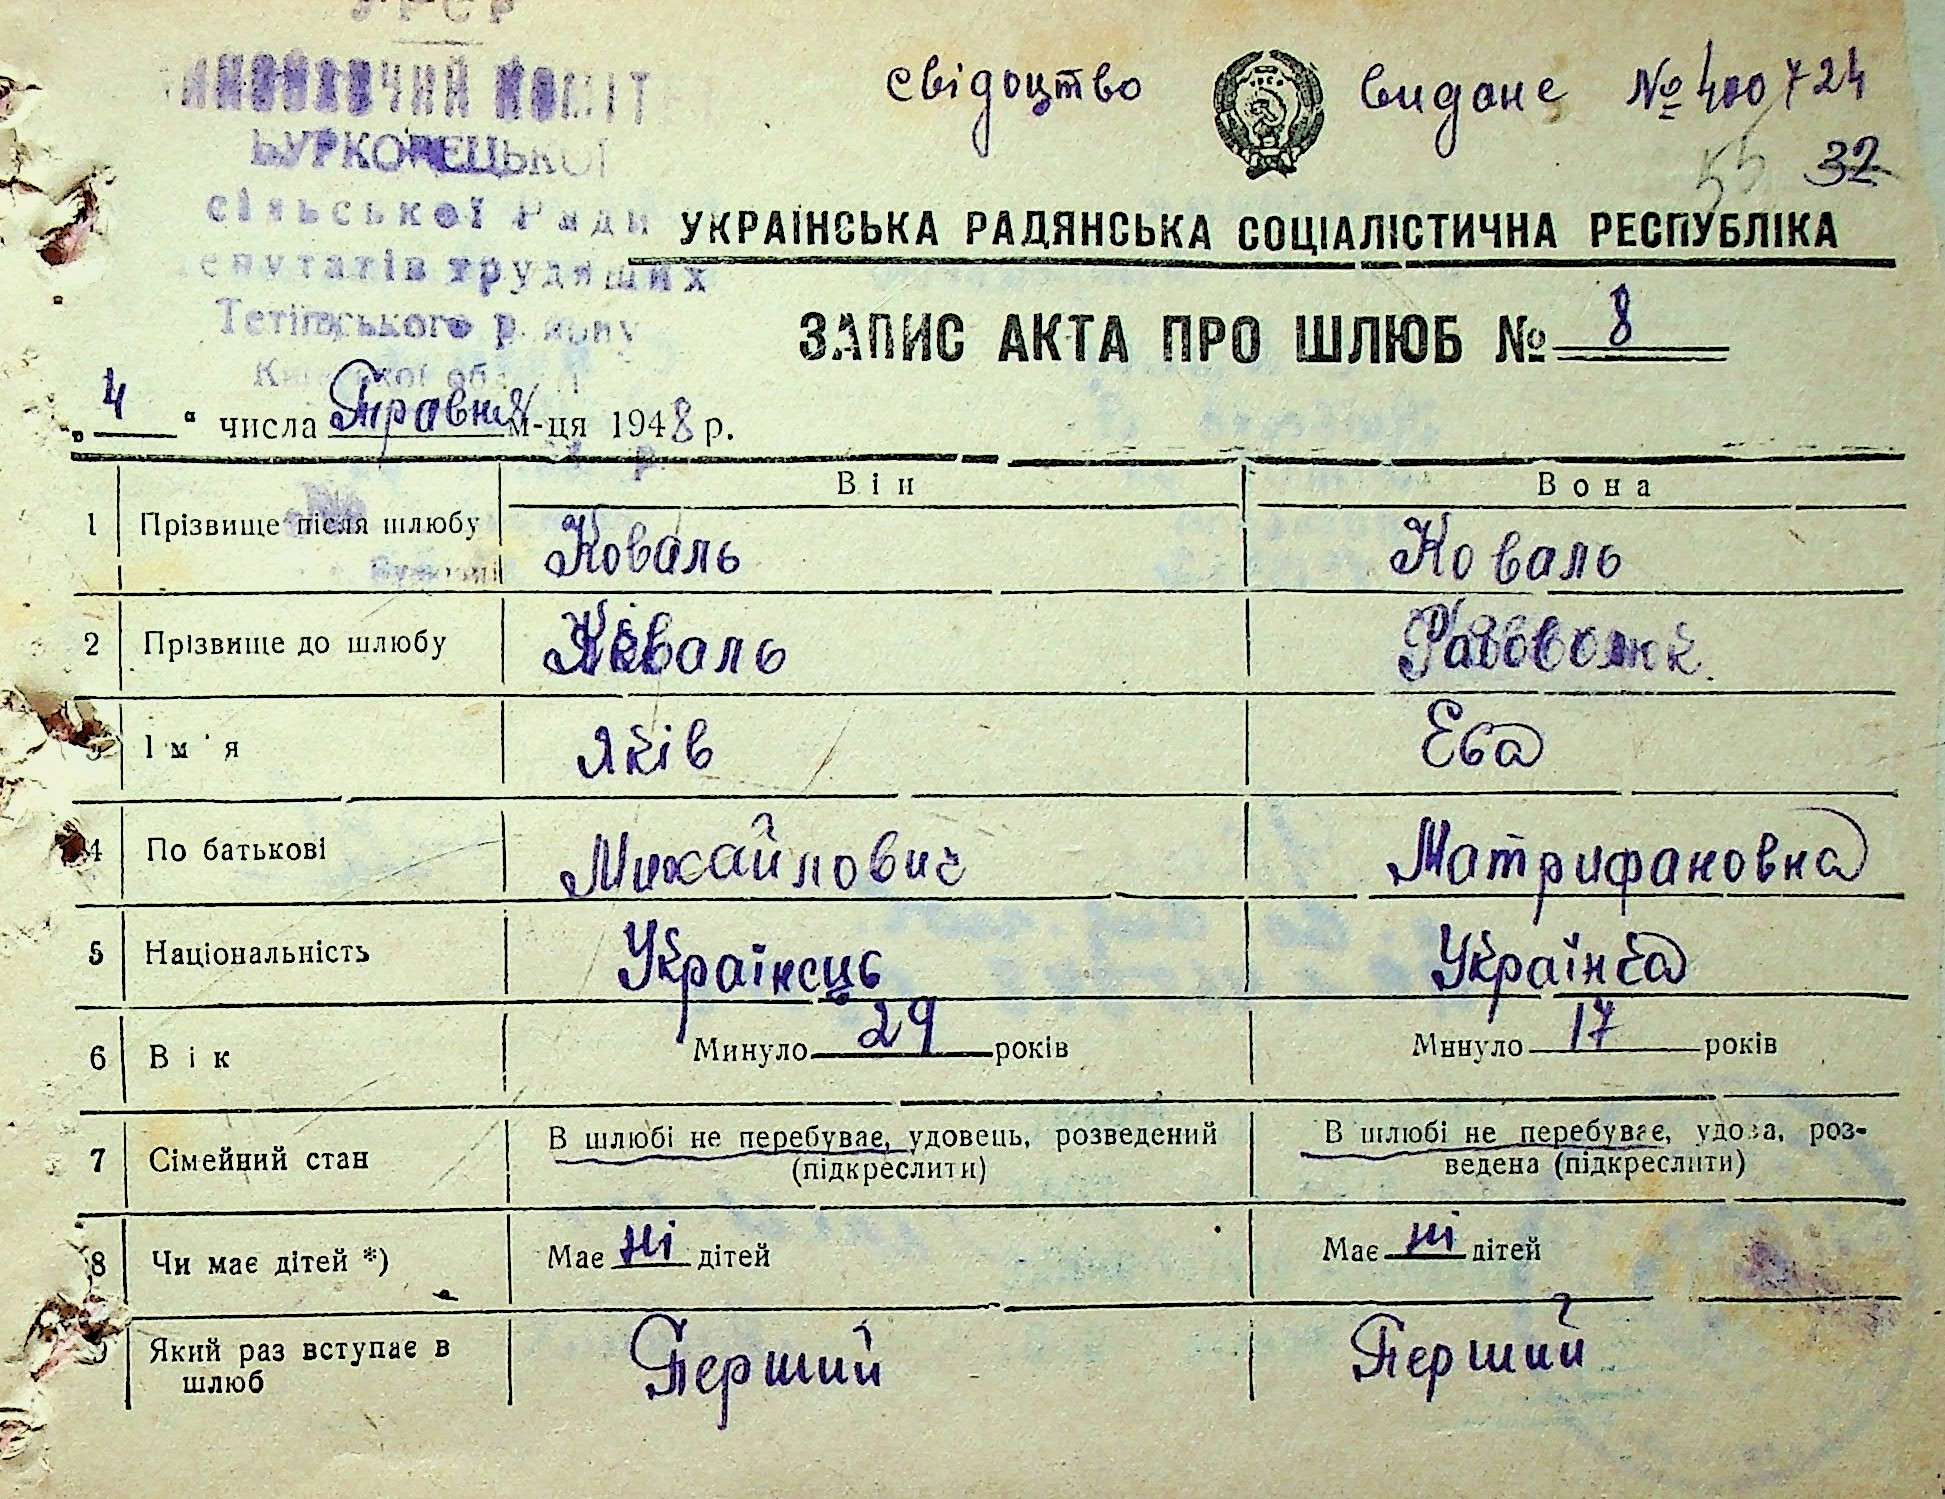 УРСР
ВИКОНАВЧИЙ КОМІТ
БУРКОВЕЦЬКОЇ
сільської Ради
депутатів трудящих
Тетіївського району
Київської області
свідоцтво видане № 400724
55 32
УКРАЇНСЬКА РАДЯНСЬКА СОЦІАЛІСТИЧНА РЕСПУБЛІКА
ЗАПИС АКТА ПРО ШЛЮБ № 8
„ 4 " числа Травня м-ця 1948 р.
Він Вона
1 Прізвище після шлюбу Коваль Коваль
2 Прізвище до шлюбу Коваль
3 Ім'я Яків Ева
4 По батькові Михайлович Матрифановна
5 Національність Українєць Українка
6 Вік Минуло 29 років Минуло 17 років
7 Сімейний стан В шлюбі не перебуває, удовець, розведений (підкреслити) В шлюбі не перебуває, удова, роз-
ведена (підкреслити)
8 Чи має дітей *) Має ні дітей Має ні дітей
9 Який раз вступає в
шлюб Перший Перший